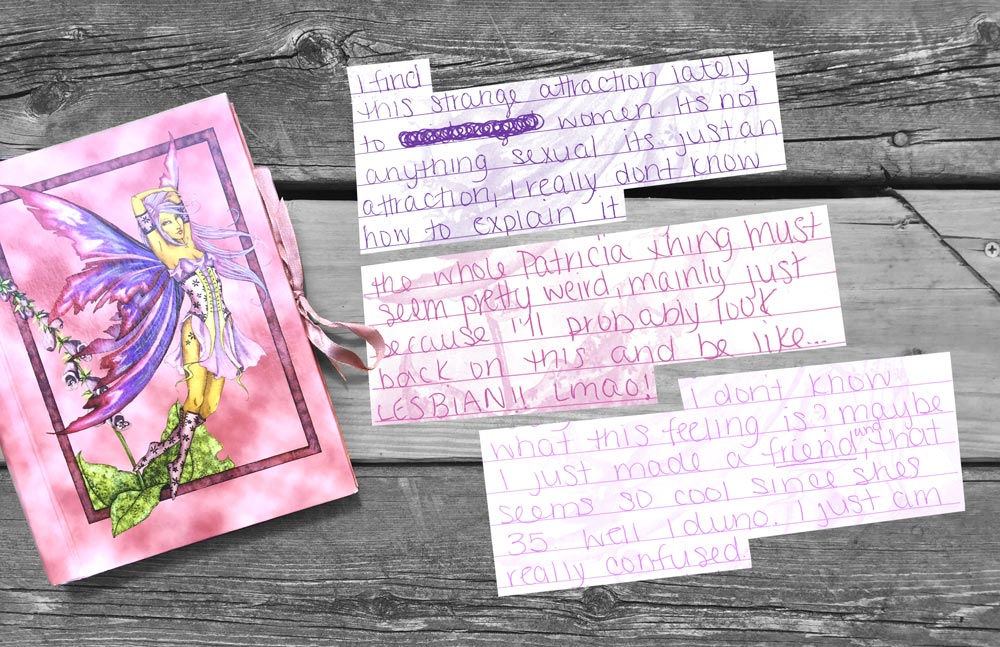 I find
this strange attraction lately
to women. Its not
anything sexual its just an
attraction, I really dont know
how to explain it
the whole Patricia thing must
seem pretty weird, mainly just
because i'll probably look
back on this and be like...
LESBIAN!! Lmao!
i don't know
what this feeling is? maybe
I just made a friend, and that
seems so cool since shes
35. Well Iduno. I just am
really confused.